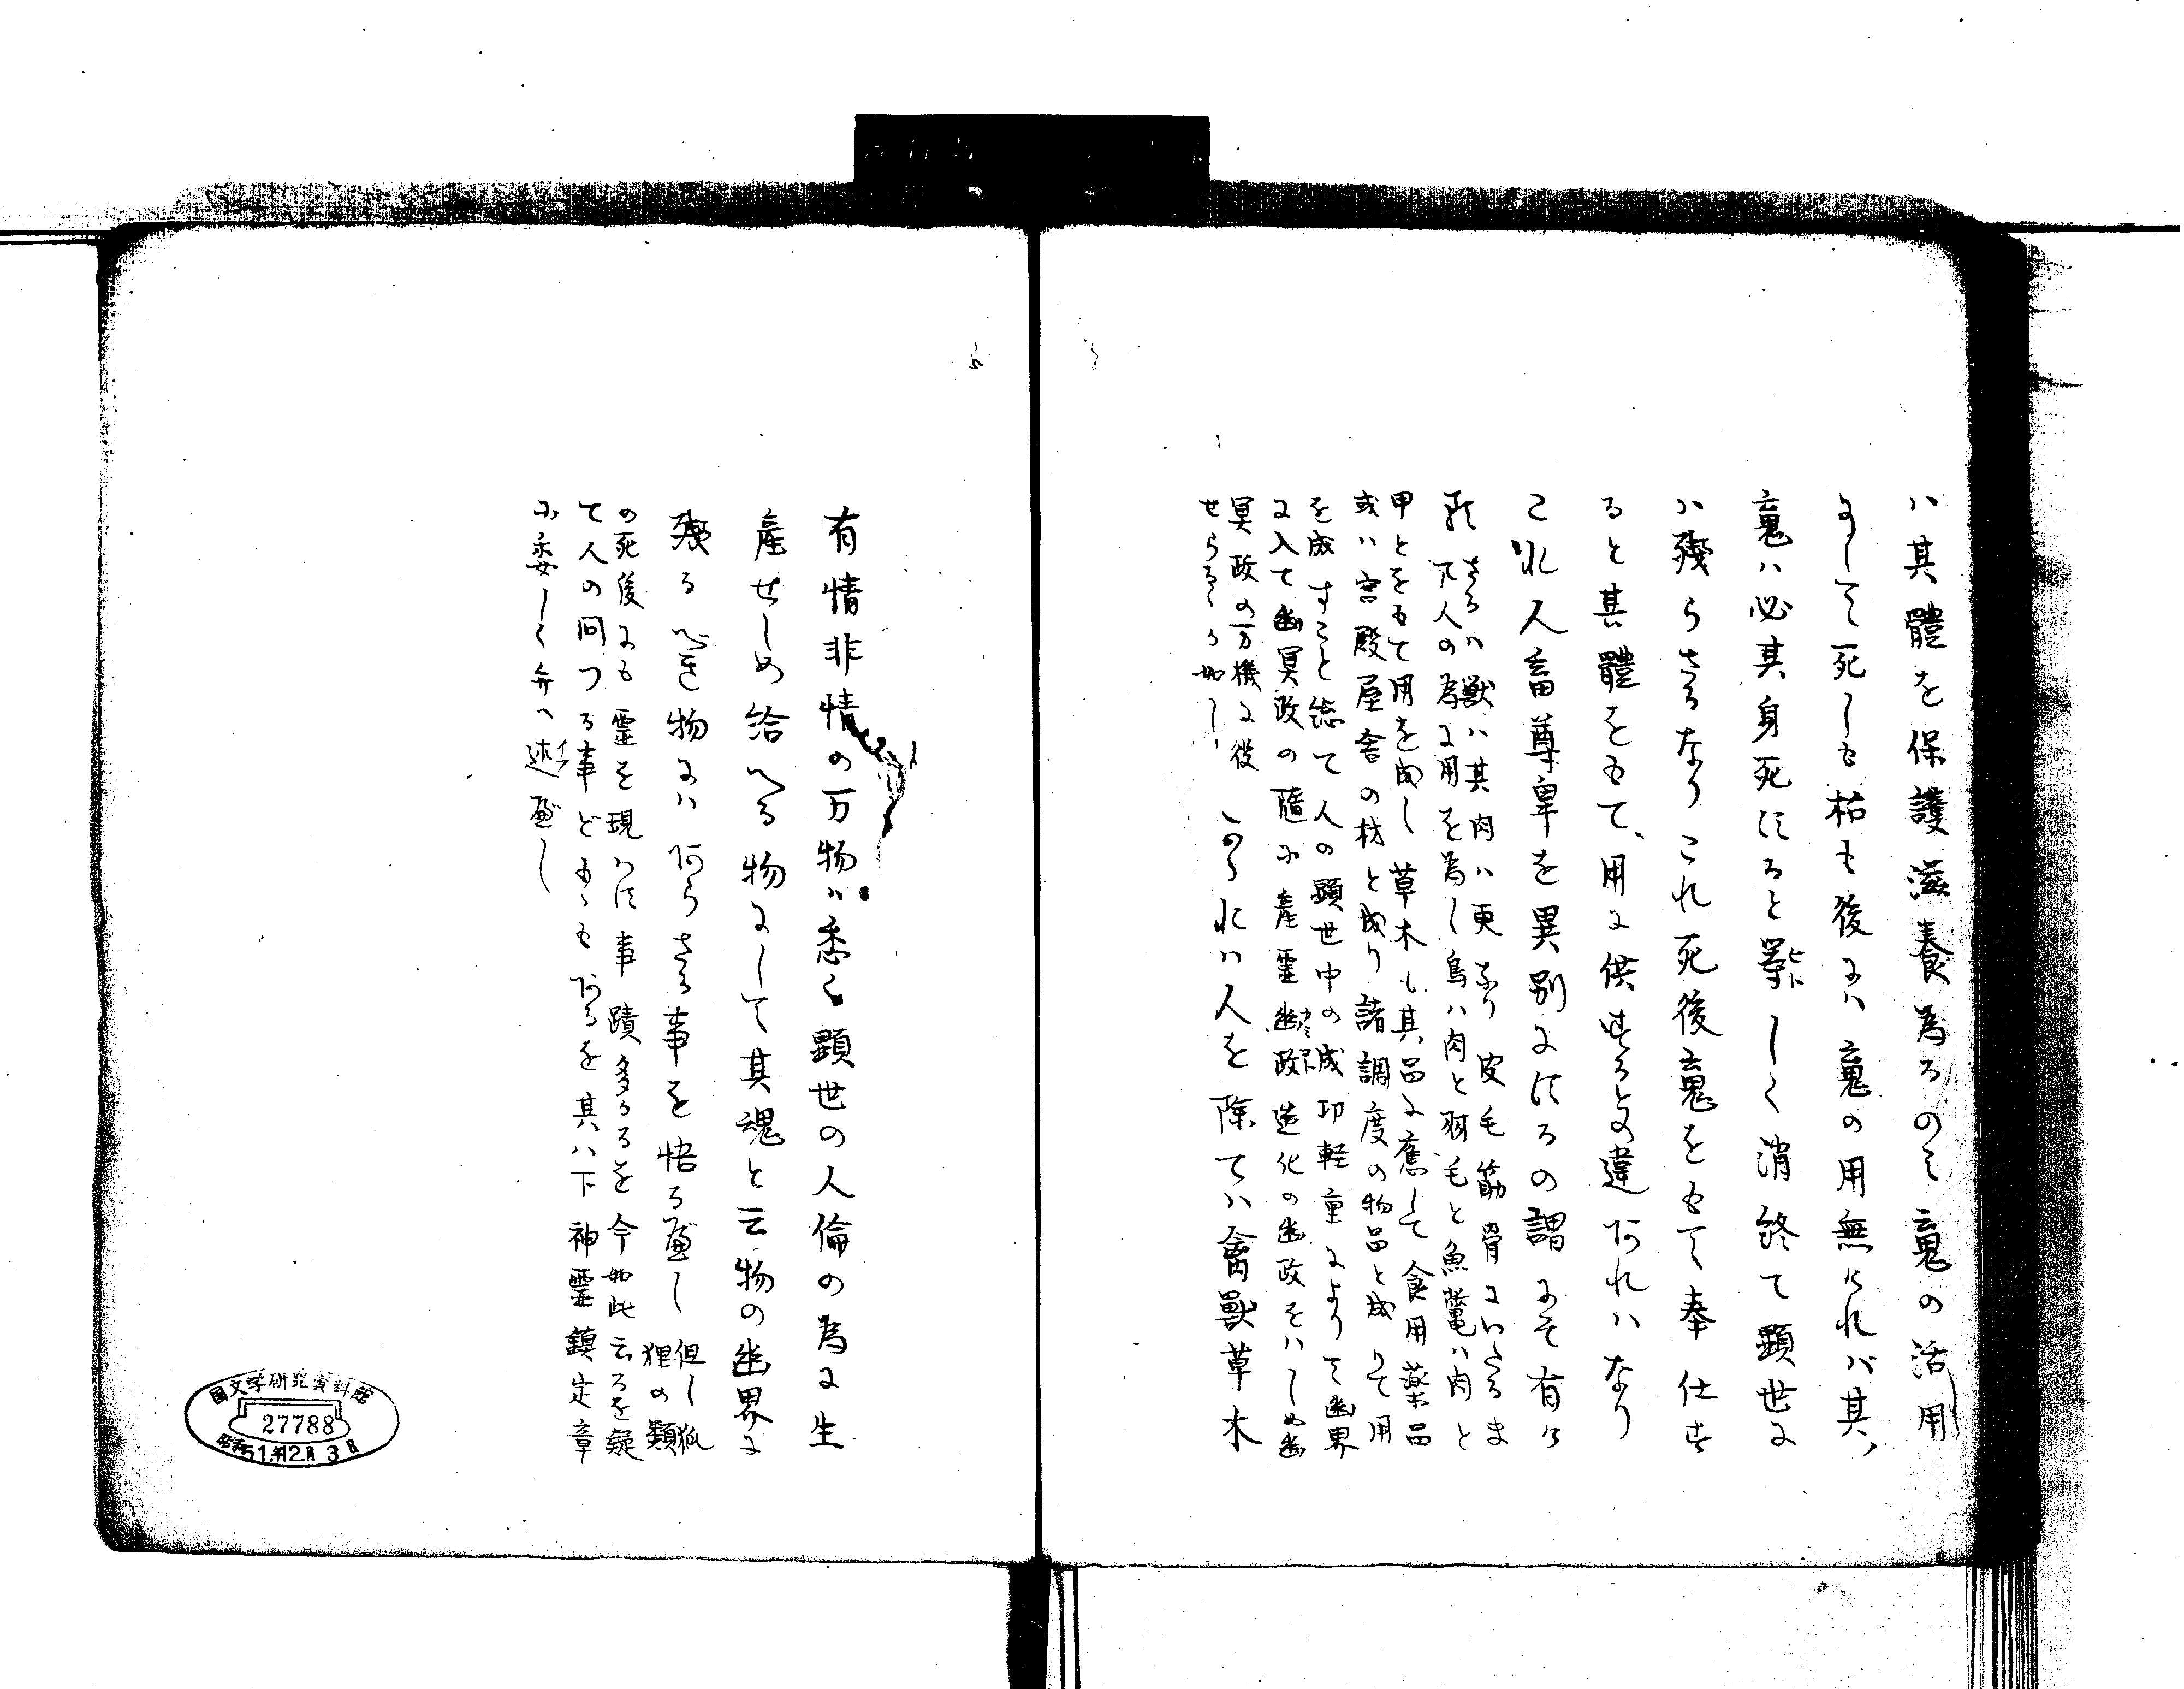 ハ其體を保護滋養為るのミ䰟の活用
にして死しも枯も後にハ䰟の用無けれバ其
䰟ハ必其身死けると等ヒトしく消終て顕世に
ハ残らさるなりこれ死後䰟をもて奉仕す
ると其體をもて用に供するとの違阿れハなり
これ人畜尊卑を異別にけるの謂にそ有け
るさるハ獣ハ其肉ハ更なり皮毛筋骨にいたるま
て人の為に用を為し鳥ハ肉と羽毛と魚鼈ハ肉と
甲とをもて用を成し草木も其品に應して食用薬品
或ハ宮殿屋舎の材と成り諸調度の物品と成りて用
を成すこと総て人の顕世中の成功軽重によりて幽界
に入て幽冥政の隨に産霊幽政造化の幽政をハしめ幽
冥政の万機に役
せらるゝか如し
かゝれハ人を除てハ禽獣草木
有情非情の万物ハ悉く顕世の人倫の為に生
産せしめ給へる物にして其魂と云物の幽界に
残るへき物にハ阿らさる事を悟る可し
但し狐
狸の類
の死後にも霊を現ハす事蹟多かるを今如此云るを疑
て人の問つる事どもゝ阿るを其ハ下神霊鎮定章
に委しく弁へ述イフ可し
国文学研究資料館
27788
昭和51年12月3日